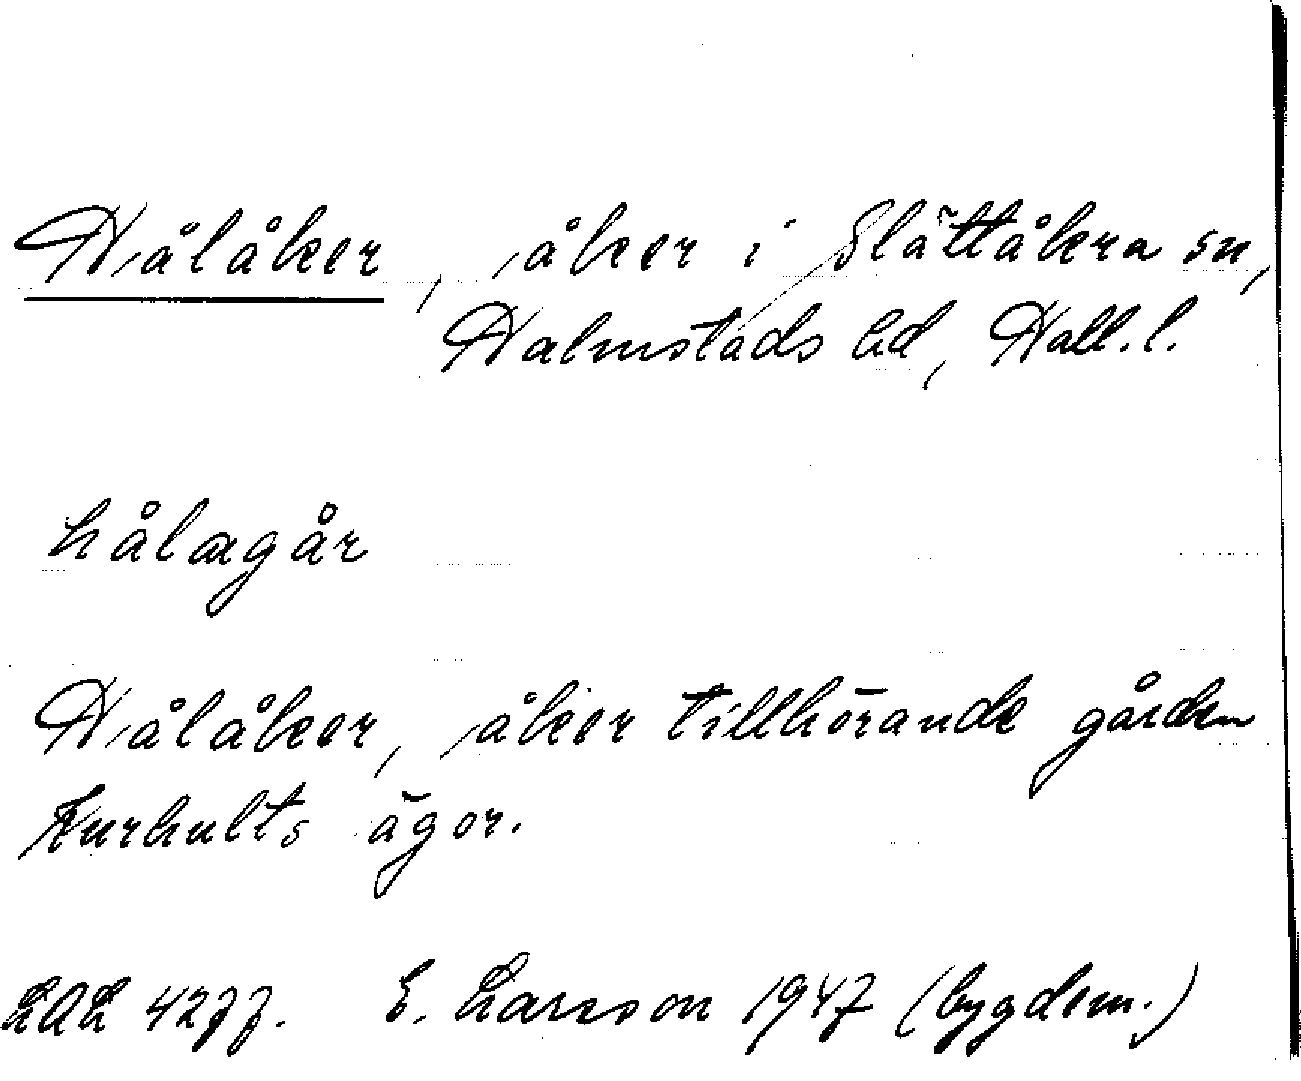 Hålåker, åker i Slättåkra sn,
Halmstads hd, Hall. l.
hålagår
Hålåker, åker tillhörande gården
Kurhults ägor.
LAL 4277. E. Larsson 1947 (bygdem.)